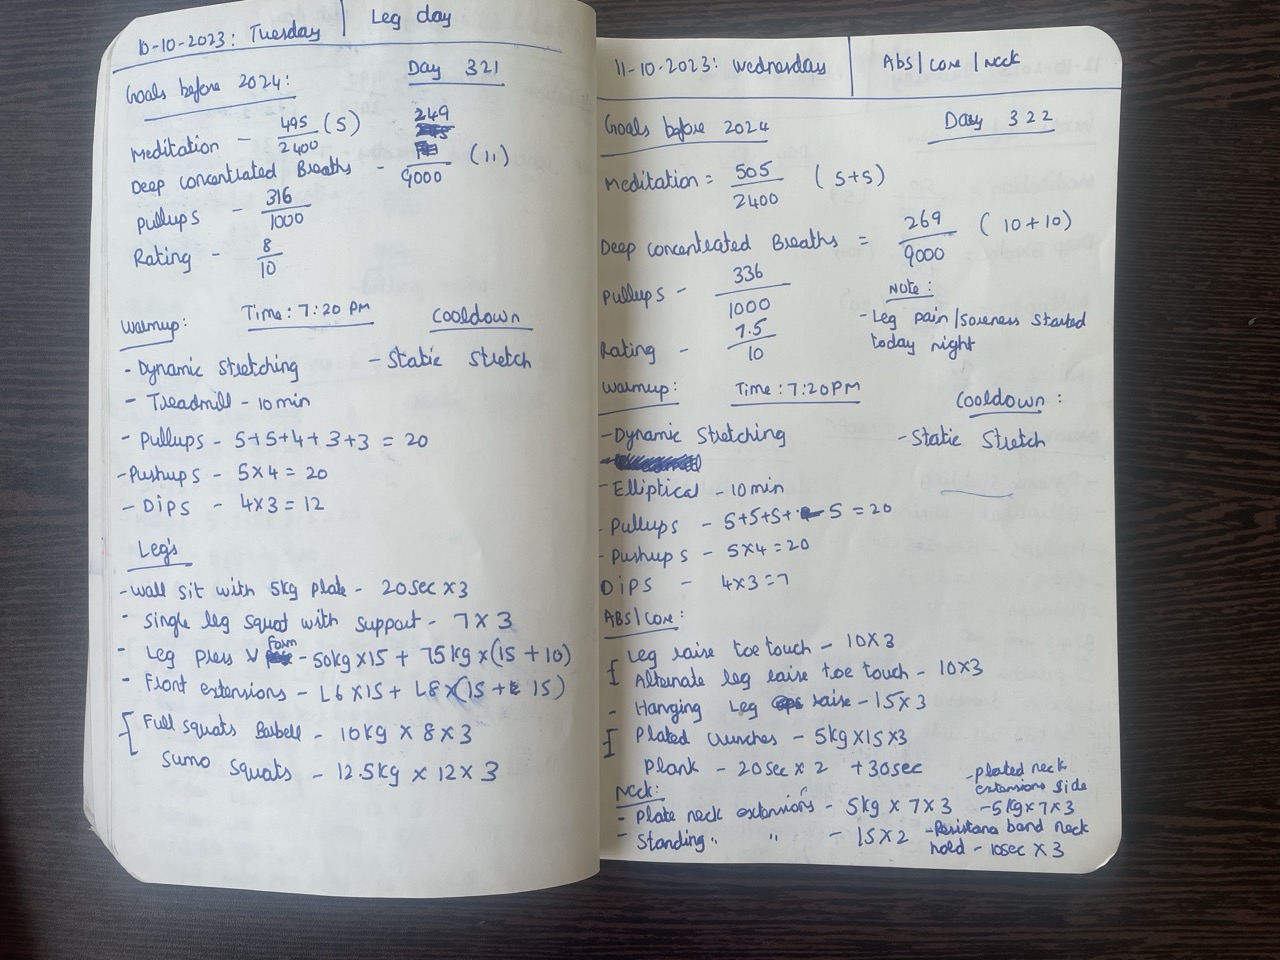 10-10-2023: Tuesday | Leg day
Goals before 2024: Day 321
Meditation - 495/2400 (5)
Deep concentrated Breaths - 249/9000 (11)
Pullups - 316/1000
Rating - 8/10
Warmup: Time: 7:20 PM Cooldown
- Dynamic Stretching - Static Stretch
- Treadmill - 10 min
- Pullups - 5+5+4+3+3 = 20
- Pushups - 5x4 = 20
- Dips - 4x3 = 12
Leg's
- Wall sit with 5kg plate - 20sec x3
- Single leg squat with support - 7x3
- Leg press V Form - 50kg x15 + 75kg x (15 + 10)
- Front extensions - L6 x15 + L8 x (15 + 15)
[ Full squats Barbell - 10kg x 8 x 3
Sumo Squats - 12.5kg x 12 x 3
11-10-2023: Wednesday | Abs/core/neck
Goals before 2024 Day 322
Meditation = 505/2400 (5+5)
Deep concentrated Breaths = 269/9000 (10+10)
Pullups - 336/1000
Note:
- Leg pain/soreness started
today night
Rating - 7.5/10
Warmup: Time: 7:20PM Cooldown:
- Dynamic Stretching - Static Stretch
- Elliptical - 10 min
- Pullups - 5+5+5+ 5 = 20
- Pushups - 5x4 = 20
Dips - 4x3 = 7
ABS/Core:
[ Leg raise toe touch - 10x3
Alternate leg raise toe touch - 10x3
- Hanging Leg raise - 15x3
[ Plated crunches - 5kg x15x3
Plank - 20sec x 2 + 30sec
Neck:
- Plate neck extensions - 5kg x 7 x 3
- Standing " " - 15x2
- plated neck
extensions side
- 5kg x 7 x 3
- Resistance band neck
hold - 10sec x 3